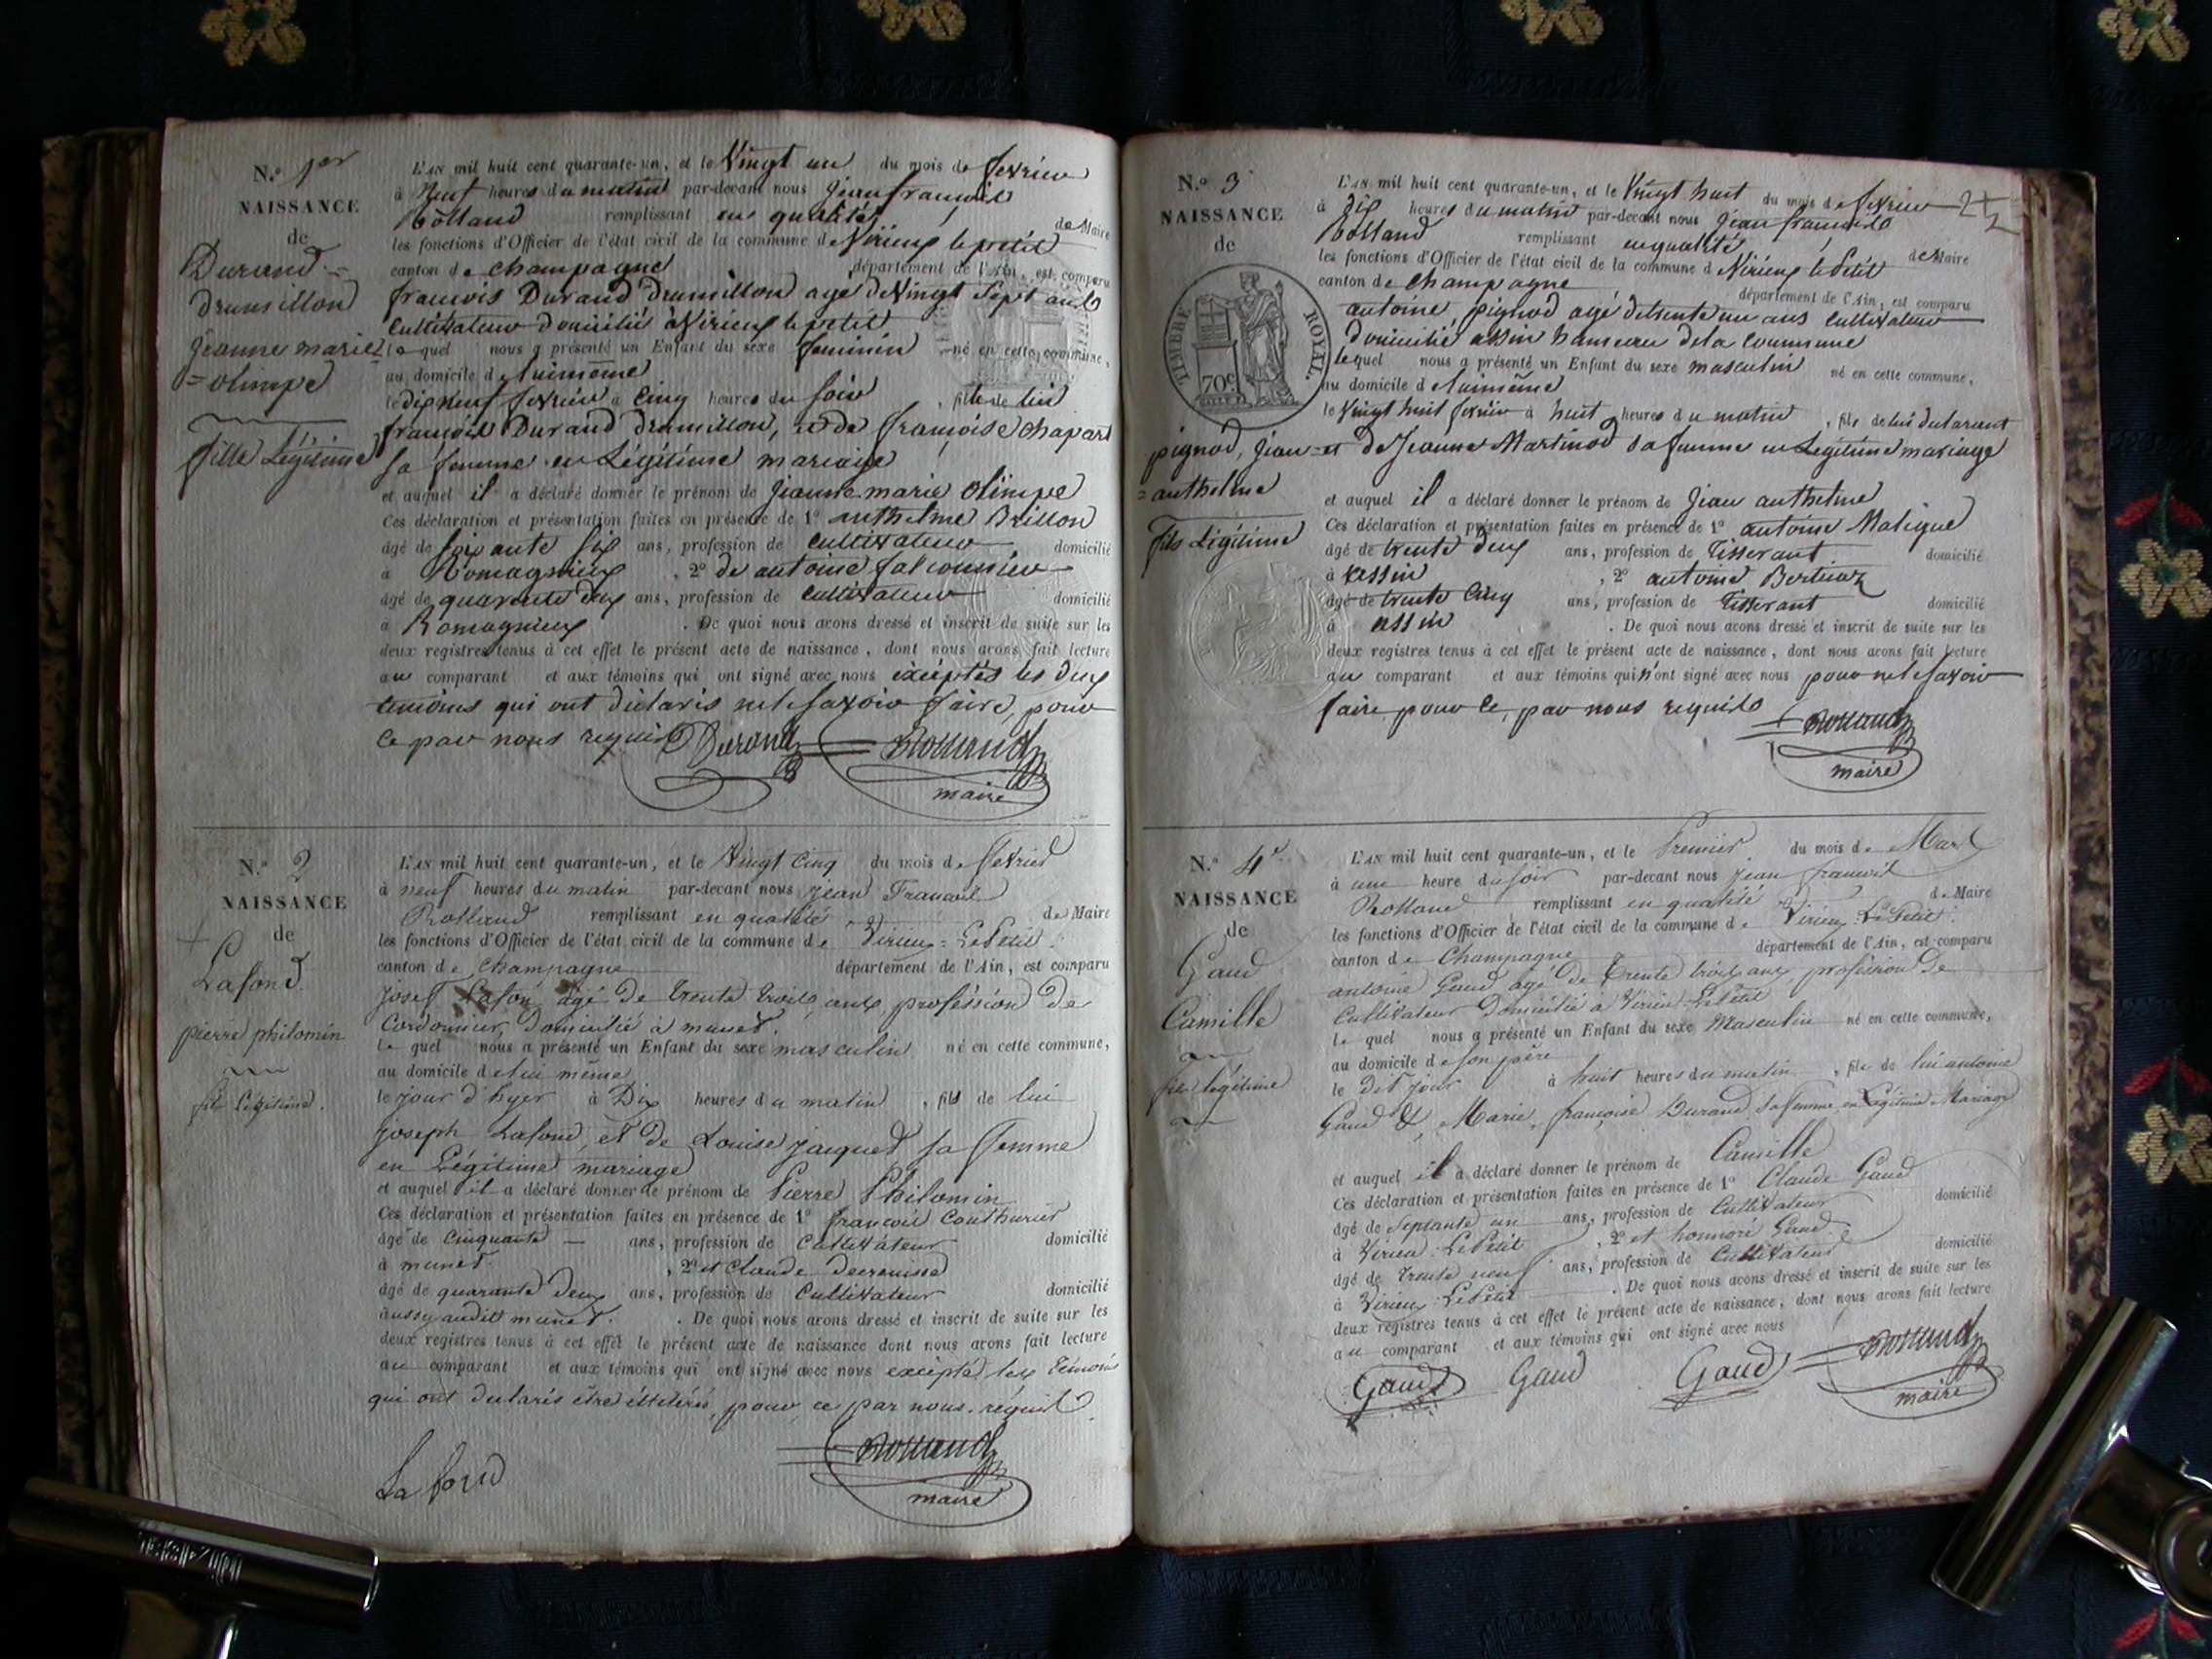 N.o 1er
NAISSANCE
de
Durand =
drumillon
Jeanne marie
= olimpe
fille Légitime
L'AN mil huit cent quarante-un, et le Vingt un du mois de fevrier
à Neuf heures du matin par-devant nous Jean françois
Rolland remplissant en qualité de Maire
les fonctions d'Officier de l'état civil de la commune de Virieux le petit
canton de Champagne département de l'Ain, est comparu
françois Durand Drumillon agé de Vingt Sept ans
Cultivateur domicilié à Virieux le petit
lequel nous a présenté un Enfant du sexe feminin né en cette commune,
au domicile de luimême
le dix neuf fevrier à Cinq heures du soir , fille de lui
françois Durand Drumillon, et de françoise Chapard
sa femme en Légitime mariage
et auquel il a déclaré donner le prénom de Jeanne marie olimpe
Ces déclaration et présentation faites en présence de 1o anthelme Brillon
âgé de soixante six ans, profession de Cultivateur domicilié
à Romagnieux , 2o de antoine falconnier
âgé de quarante deux ans, profession de Cultivateur domicilié
à Romagnieux . De quoi nous avons dressé et inscrit de suite sur les
deux registres tenus à cet effet le présent acte de naissance, dont nous avons fait lecture
au comparant et aux témoins qui ont signé avec nous exceptés les deux
temoins qui ont déclarés ne le savoir faire, pour
ce par nous requis Durand Rolland
maire
N.o 2
NAISSANCE
de
Lafond.
pierre philomin
fils Légitime.
L'AN mil huit cent quarante-un, et le Vingt Cinq du mois de fevrier
à neuf heures du matin par-devant nous Jean François
Rolland remplissant en qualité de Maire
les fonctions d'Officier de l'état civil de la commune de Virieux = Le Petit.
canton de Champagne département de l'Ain, est comparu
Josef Lafon agé de trente trois ans, profession de
Cordonnier, domicilié à munet.
le quel nous a présenté un Enfant du sexe masculin né en cette commune,
au domicile de lui même
le jour d'hyer à Dix heures du matin , fils de lui
Joseph Lafond, et de Louise jacquet sa femme
en Légitime mariage
et auquel il a déclaré donner le prénom de Pierre Philomin
Ces déclaration et présentation faites en présence de 1o françois Couthurier
âgé de Cinquante — ans, profession de Cultivateur domicilié
à munet. , 2o et Claude
âgé de quarante deux ans, profession de Cultivateur domicilié
aussy audit munet. . De quoi nous avons dressé et inscrit de suite sur les
deux registres tenus à cet effet le présent acte de naissance dont nous avons fait lecture
au comparant et aux témoins qui ont signé avec nous excepté les témoins
qui ont declarés être illitérés, pour ce par nous requis
Lafond Rolland
maire
N.o 3
NAISSANCE
de
TIMBRE ROYAL.
70c
pignod, Jean
= anthelme
fils Légitime
2
L'AN mil huit cent quarante-un, et le Vingt huit du mois de fevrier
à Dix heures du matin par-devant nous Jean françois
Rolland remplissant en qualité de Maire
les fonctions d'Officier de l'état civil de la commune de Virieux le Petit
canton de Champagne département de l'Ain, est comparu
antoine pignod agé de trente un ans Cultivateur
domicilié assin hameau de la Commune
lequel nous a présenté un Enfant du sexe masculin né en cette commune,
au domicile de luimême
le Vingt huit fevrier à huit heures du matin , fils de lui declarant
et de Jeanne Martinod sa femme en Legitime mariage
et auquel il a déclaré donner le prénom de Jean anthelme
Ces déclaration et présentation faites en présence de 1o antoine
âgé de trente deux ans, profession de Tisserant domicilié
à assin , 2o antoine
âgé de trente Cinq ans, profession de Tisserant domicilié
à assin . De quoi nous avons dressé et inscrit de suite sur les
deux registres tenus à cet effet le présent acte de naissance, dont nous avons fait lecture
au comparant et aux témoins qui n'ont signé avec nous pour ne le savoir
faire, pour ce, par nous requis
Rolland
maire
N.o 4e
NAISSANCE
de
Gaud
Camille
fils légitime
L'AN mil huit cent quarante-un, et le Premier du mois de Mars
à une heure du soir par-devant nous Jean françois
Rolland remplissant en qualité de Maire
les fonctions d'Officier de l'état civil de la commune de Virieu Le Petit.
canton de Champagne département de l'Ain, est comparu
antoine Gaud agé de Trente trois ans, profession de
Cultivateur domicilié à Virieu Le Petit
le quel nous a présenté un Enfant du sexe Masculin né en cette commune,
au domicile de son père
le dit jour à huit heures du matin , fils de lui antoine
Gaud & Marie, françoise Durand sa femme en Légitime Mariage
et auquel il a déclaré donner le prénom de Camille
Ces déclaration et présentation faites en présence de 1o Claude Gaud
âgé de Septante un ans, profession de Cultivateur domicilié
à Virieu : Le Petit , 2o et honnoré Gaud
âgé de Trente neuf ans, profession de Cultivateur domicilié
à Virieu : Le Petit . De quoi nous avons dressé et inscrit de suite sur les
deux registres tenus à cet effet le présent acte de naissance, dont nous avons fait lecture
au comparant et aux témoins qui ont signé avec nous
Gaud Gaud Gaud Rolland
maire